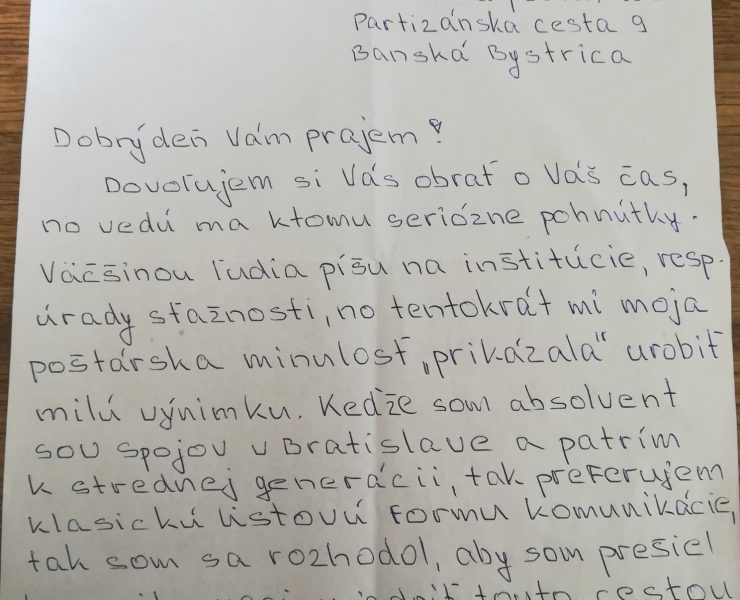 Partizánska cesta 9
Banská Bystrica
Dobrýdeň Vám prajem!
Dovoľujem si Vás obrať o Váš čas,
no vedú ma ktomu seriózne pohnútky.
Väčšinou ľudia píšu na inštitúcie, resp.
úrady sťažnosti, no tentokrát mi moja
poštárska minulosť „prikázala“ urobiť
milú výnimku. Keďže som absolvent
SOU spojov v Bratislave a patrím
k strednej generácii, tak preferujem
klasickú listovú formu komunikácie,
tak som sa rozhodol, aby som prešiel
touto cestou